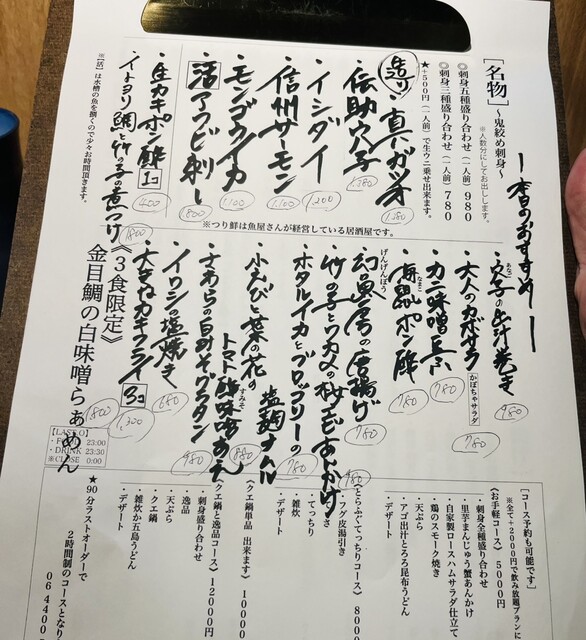 ー本日のおすすめー
［名物］～鬼絞め刺身～
※人数分にてお出しします。
◎刺身五種盛り合わせ（一人前）980
◎刺身三種盛り合わせ（一人前）780
★＋500円（一人前）で生ウニ乗せ出来ます。
造り
・真ガツオ 1,380
・伝助穴子 1,380
・イシダイ 1,200
・信州サーモン 1,100
・モンゴウイカ 1,100
・活アワビ刺し 1,800
・生カキポン酢 1コ 400
・イトヨリ鯛と竹の子の煮つけ 1,800
※【活】は水槽の魚を捌くので少々お時間頂きます。
※つり鮮は魚屋さんが経営している居酒屋です。
・穴子の出汁巻き 980
あなご
・大人のカボサラ かぼちゃサラダ 780
・カニ味噌豆腐 780
・海鼠ポン酢 780
なまこ
・幻の魚 唐揚げ 780
げんげんぼう
・竹の子とワカメの桜エビあんかけ 980
・ホタルイカとブロッコリーの塩麹ナムル 780
・小えびと菜の花のトマト酢味噌あえ 880
すみそ
・さわらの白みそグラタン 980
・イワシの塩焼き 680
・大粒カキフライ 3コ 1,300
《３食限定》
金目鯛の白味噌らぁめん 1800
LAST.O
・FOOD 23:00
・DRINK 23:30
※CLOSE 0:00
［コース予約も可能です］
※全て＋2000円で飲み放題プラン
《お手軽コース》 5000円
・刺身全種盛り合わせ
・里芋まんじゅう蟹あんかけ
・自家製ロースハムサラダ仕立て
・鶏のスモーク焼き
・天ぷら
・アゴ出汁とろろ昆布うどん
・デザート
《とらふぐてっちりコース》 8000
・フグ皮湯引き
・てっさ
・てっちり
・雑炊
・デザート
《クエ鍋単品 出来ます》 10000
《クエ鍋と逸品コース》 12000円
・刺身盛り合わせ
・逸品
・天ぷら
・クエ鍋
・雑炊か五島うどん
・デザート
★90分ラストオーダーで
2時間制のコースとなり
06 4400